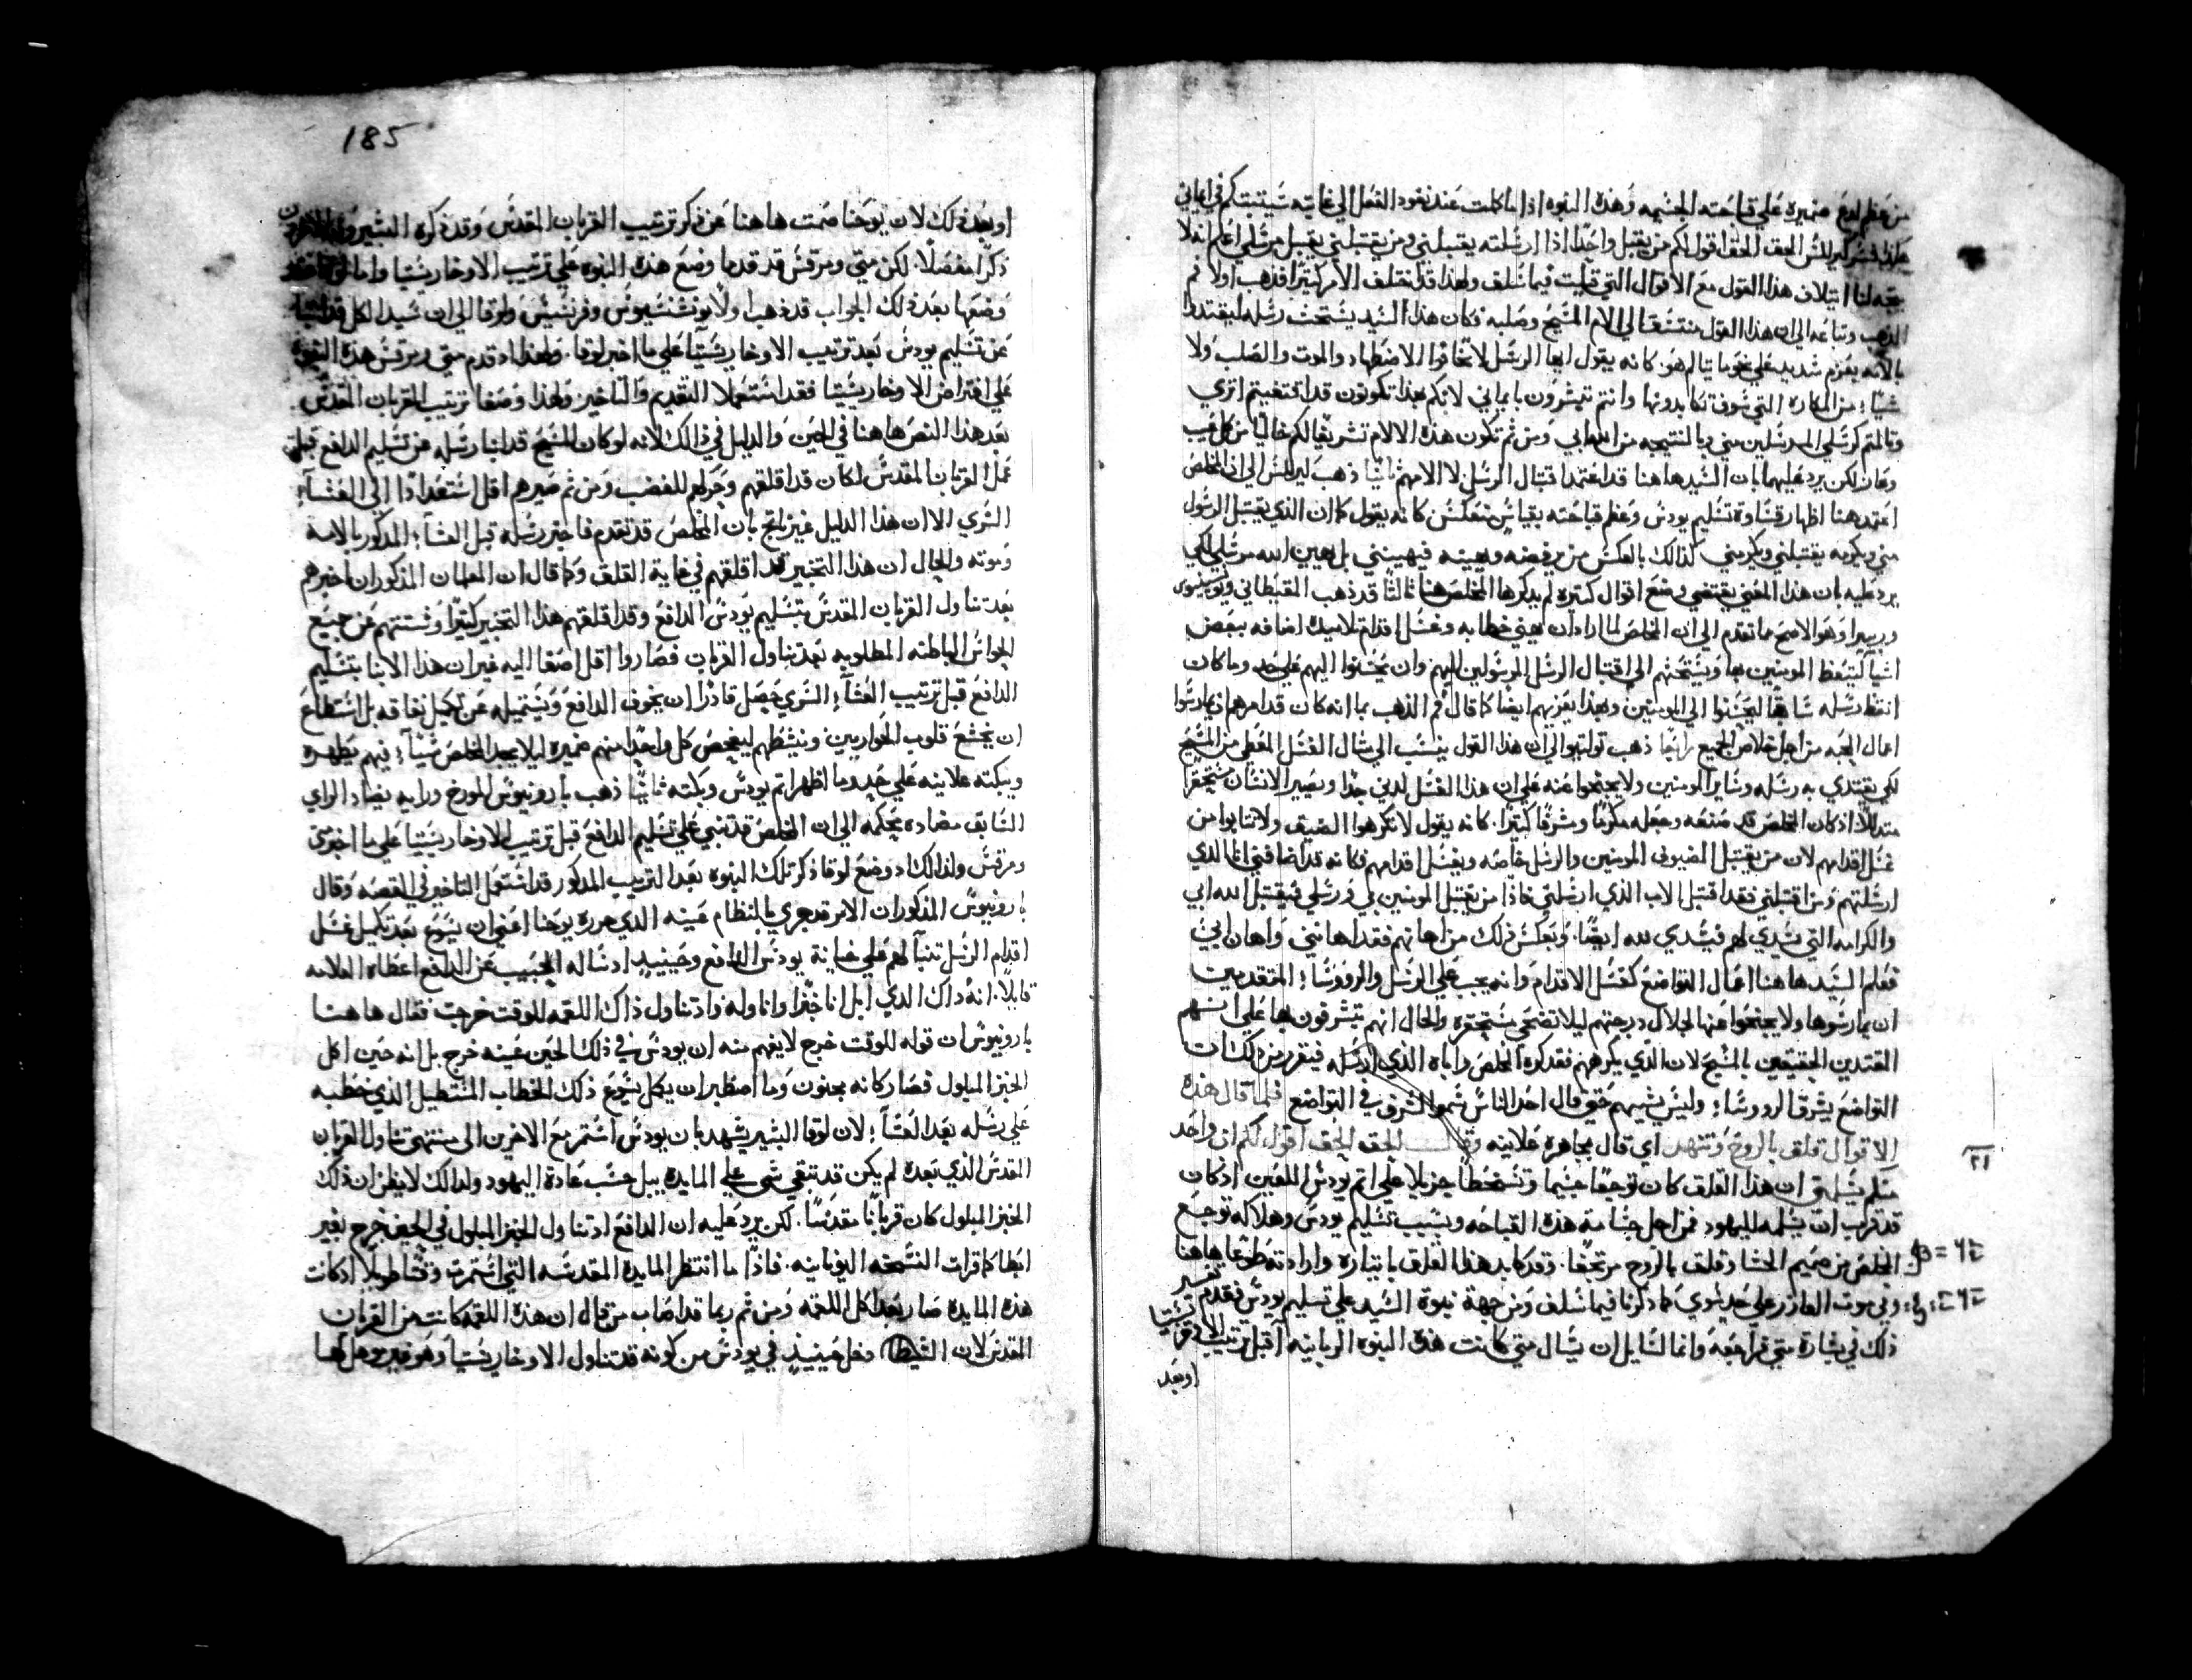 من عظم لدغ ضميره علي قباحته الجسيمه وهذه النبوه اذا ما كملت عند نفود الفعل الي غايته سيتبتكم في ايماني
الحق الحق اقول لكم من يقبل واحدًا اذا ارسلته يقبلني ومن يقبلني يقبل مرسلي اعلم انه لا
يتجه لنا ايتلاف هذا القول مع الاقوال التي قيلت فيما سلف ولهذا قد اختلف الامر كثيرًا فذهب اولا فم
الذهب وتباعه الي ان هذا القول الي الام المسيح وصلبه فكان هذا السيد يستحث رسله ليقتدوا
بالامه بعزم شديد علي كانه يقول ايها الرسل لا تخافوا الاضطهاد والموت والصلب ولا
شيًا من المكاره التي سوف تكابدونها وانتم تبشرون بايماني لانكم بهذا تكونون قد
كرسلي المرسلين مني وبالنتيجه من الله ابي ومن ثم تكون هذه الالام تشريفًا لكم خاليًا من كل عيب
وعار لكن يرد عليهما بان السيد هاهنا قد اعتمد اقتبال الرسل لا الامهم ثانيًا ذهب الي ان المخلص
اعتمد هنا اظهار قساوة تسليم يودس وعظم قباحته بقياس منعكس كانه يقول كما ان الذي يقتبل الرسول
مني ويكرمه يقتبلني ويكرمني كذالك بالعكس من يرفضه ويهينه فيهينني بل يهين الله مرسلي لكن
يرد عليه بان هذا المعني يقتضي وضع اقوال كتيره لم يذكرها المخلص هنا ثالثًا قد ذهب
وهو الاصح مما تقدم الي ان المخلص لما اراد ان ينهي خطابه وغسل اقدام تلاميده اضافه ببعض
اشيآ ليتعظ المومنين بها ويستحثهم الي اقتبال الرسل المرسولين اليهم وان يحسنوا اليهم علي حد وما كان
رسله سابقًا ليحسنوا الي المومنين وبهذا يعزيهم ايضًا كما قال فم الذهب بما انه كان قد امرهم ان يمارسوا
اعمال المحبه من اجل خلاص الجميع رابعًا ذهب الي ان هذا القول ينسب الي مثال الغسل المعطي من المسيح
لكي يقتدي به رسله وساير المومنين ولا يحتجوا عنه علي ان هذا الغسل لدني جدًا ويصير الانسان مستحقرًا
متدللًا اذ كان المخلص قد صنعه وجعله مكرمًا ومشرفًا كتيرًا. كانه يقول لا تكرهوا الضيف ولا تتابوا من
غسل اقدامهم لان من يقتبل الضيوف المومنين والرسل خاصه ويغسل اقدامهم فكانه قد اضافني انا الدي
ارسلتهم ومن اقتبلني فقد اقتبل الاب الذي ارسلني فاذًا من يقتبل المومنين بي ورسلي فيقتبل الله ابي
والكرامه التي تسدي لهم فتسدي لله ايضًا. وبعكس ذلك من اهانهم فقد اهانني واهان ابي
فعلم السيد هاهنا اعمال التواضع كغسل الاقدام وانه يجب علي الرسل والرووسآ المتقدمين
ان يمارسوها ولا يحتجوا عنها لجلال درجتهم ليلا تضحي مستحقره والحال انهم يتشرفون بها علي
المقتدين الحقيقيين بالمسيح لان الذي يكرههم فقد كره المخلص واباه الذي ارسله فيتقرر من ذلك ان
التواضع يشرف الروسآ وليس يشينهم حتي قال احد الناس سمو الشرف في التواضع فلما قال هذه
الاقوال قلق بالروح وتنهد اي قال مجاهره علانيه وقال الحق الحق اقول لكم ان واحد
منكم يسلمني ان هذا القلق كان توجعًا جسيما وتسخطًا جزيلا علي اتم يودس اللعين اذ كان
قد قرب ان يسلمه لليهود فمن اجل جسامة هذه القباحه وبسبب تسليم يودس وهلاكه توجع
المخلص من صميم الحشا وقلق بالروح مرتجفًا. وقد كابد هذا القلق باختياره وارادته طوعًا هاهنا
وفي موت العازر علي حد سوي كما ذكرنا فيما سلف ومن جهة نبوة السيد علي تسليم يودس فقد تم تفسير
ذلك في بشارة متي فراجعه وانما لسايل ان يسال متي كانت هذه النبوه الربانيه اقبل ترتيب
٢١
اوبعد
185
او بعد ذلك لان يوحنا صمت هاهنا عن ذكر ترتيب القربان المقدس وقد ذكره البشيرون الاخرون
ذكرًا مفصلًا. لكن متي ومرقس قد قدما وضع هذه النبوه علي ترتيب الاوخارستيا واما لوقا فقد
وضعها بعد ذلك الجواب قد ذهب اولًا ولوقا الي ان سيد الكل قد انبا
عن تسليم يودس بعد ترتيب الاوخاريستيا علي ما اخبر لوقا. ولهذا اذ قدم متي ومرقس هذه النبوه
علي افتراض الاوخاريستيا فقد استعملا التقديم والتاخير ولهذا وضعا ترتيب القربان المقدس
بعد هذا النص هاهنا في الحين والدليل في ذالك لانه لو كان المسيح قد انبا رسله عن تسليم الدافع قبلما
عمل القربان المقدس لكان قد اقلقهم وحركهم للغضب ومن ثم صيرهم اقل استعدادًا الي العشآ
السري الا ان هذا الدليل غير راجح بان المخلص قد تقدم فاخبر رسله قبل العشآ المذكور بالامه
وموته والحال ان هذا التخبير قد اقلقهم في غاية القلق وكما قال ان المعلمان المذكوران اخبرهم
بعد تناول القربان المقدس بتسليم يودس الدافع وقد اقلقهم هذا التخبير كتيرًا وشتتهم عن جميع
الحواس الباطنه المطلوبه بعد تناول القربان فصاروا اقل اصغا اليه غير ان هذا الانبا بتسليم
الدافع قبل ترتيب العشآ السري حصل قادرًا ان يخوف الدافع ويستميله عن تكميل نفاقه بل استطاع
ان يخشع قلوب الحواريين وينشطهم ليفحص كل واحدًا منهم ضميره ليلا يجد المخلص شيآ فيهم يظهره
ويبكته علانيه علي حد وما اظهر اتم يودس وبكته ثانيًا ذهب بارونيوس المورخ ورايه يضاد الراي
السابق مضاده محكمه الي ان المخلص قد تنبي علي تسليم الدافع قبل ترتيب الاوخاريستيا علي ما اخبر متي
ومرقس ولذالك اذ وضع لوقا ذكر تلك النبوه بعد الترتيب المذكور قد استعمل التاخير في القصه وقال
بارونيوس المذكور ان الامر قد جري بالنظام عينه الذي حرره يوحنا اعني ان يسوع بعد تكميل غسل
اقدام الرسل تنبآ لهم علي خيانة يودس الدافع وحينيدٍ اذ ساله الحبيب عن الدافع اعطاه العلامه
قايلًا: انه ذاك الذي ابل انا خبزًا واناوله واذ تناول ذاك اللقمه للوقت خرج فقال هاهنا
بارونيوس ان قوله للوقت خرج لا يفهم منه ان يودس في ذلك الحين عينه خرج بل انه حين اكل
الخبز المبلول فصار كانه مجنون وما اصطبر ان يكمل يسوع ذلك الخطاب المستطيل الذي خطبه
علي رسله بعد العشآ لان لوقا البشير يشهد بان يودس استمر مع الاخرين الي منتهي تناول القربان
المقدس الذي بعده لم يكن قد تبقي شي علي المايده يبل حسب عادة اليهود ولذالك لا يظن ان ذلك
الخبز المبلول كان قربانًا مقدسًا. لكن يرد عليه ان الدافع اذ تناول الخبز المبلول في الحين خرج بغير
ابطا كما قرات النسخه اليونانيه. فاذًا ما انتظر المايده المقدسه التي استمرت وقتًا طويلًا اذ كانت
هذه المايده صارت بعد اكل اللقمه ومن ثم ربما قد اصاب من قال ان هذه اللقمه كانت من القربان
المقدس لان الشيطان دخل حينيذٍ في يودس من كونه قد تناول الاوخاريستيا وهو